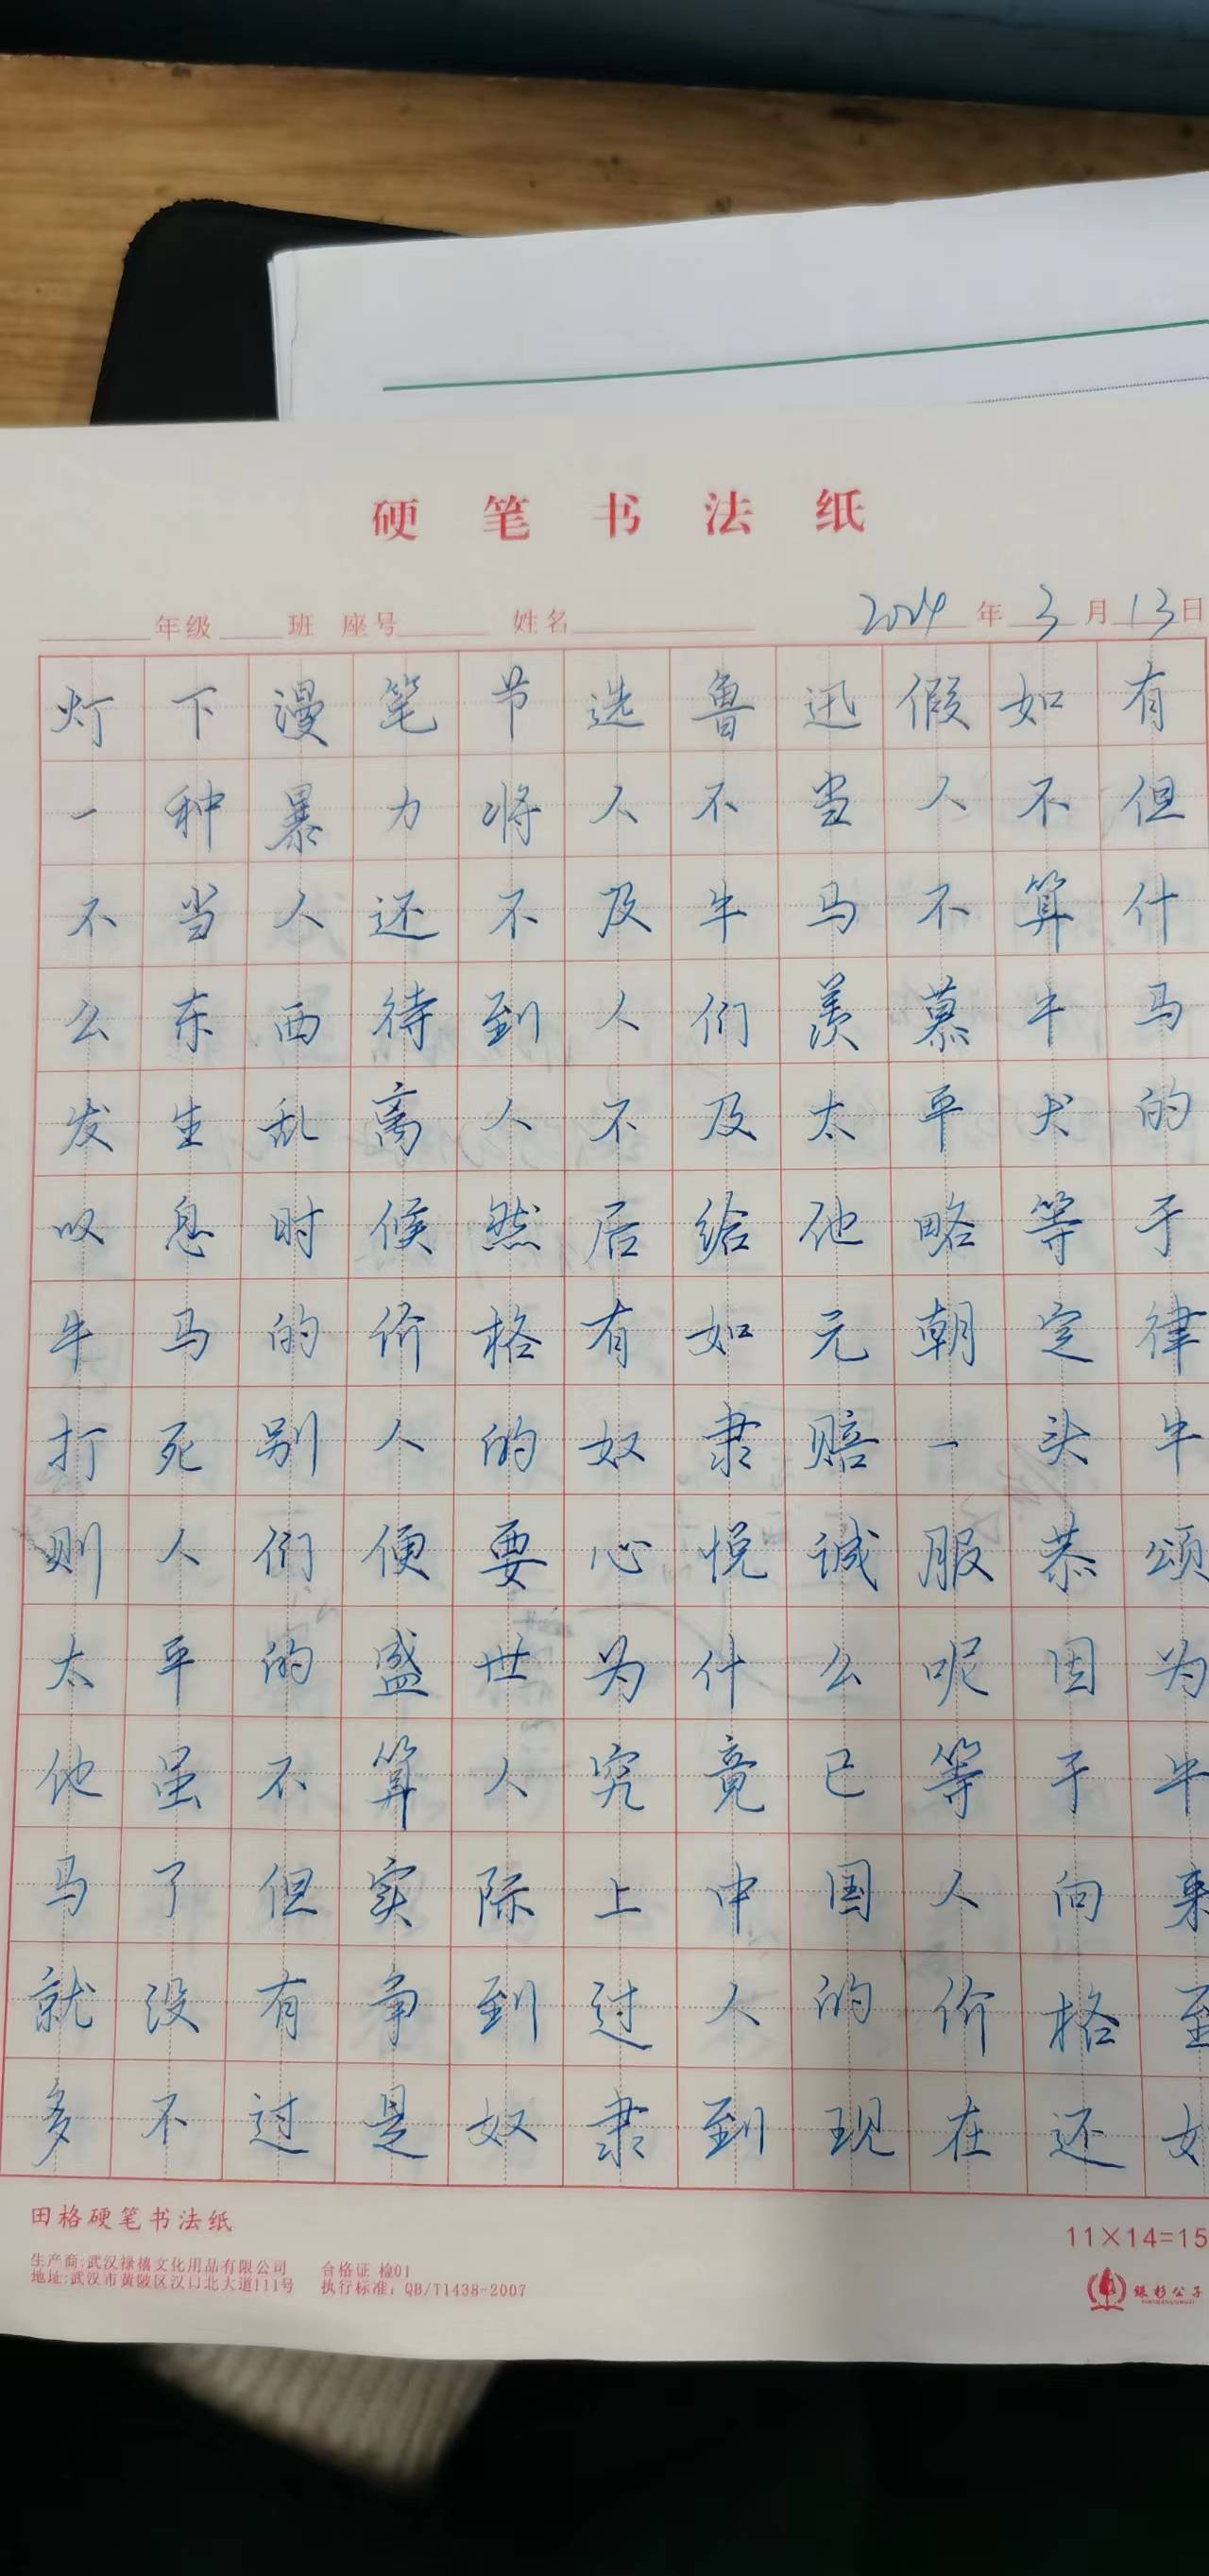 硬笔书法纸
年级 班 座号 姓名 2024年3月13日
灯下漫笔节选鲁迅假如有
一种暴力将人不当人不但
不当人还不及牛马不算什
么东西待到人们羡慕牛马
发生乱离人不及太平犬的
叹息时候然后给他略等于
牛马的价格有如元朝定律
打死别人的奴隶赔一头牛
则人们便要心悦诚服恭颂
太平的盛世为什么呢因为
他虽不算人究竟已等于牛
马了但实际上中国人向来
就没有争到过人的价格至
多不过是奴隶到现在还
田格硬笔书法纸
11×14=15
生产商:武汉禄禧文化用品有限公司 合格证 检01
地址:武汉市黄陂区汉口北大道111号 执行标准: QB/T1438-2007
银杉公子